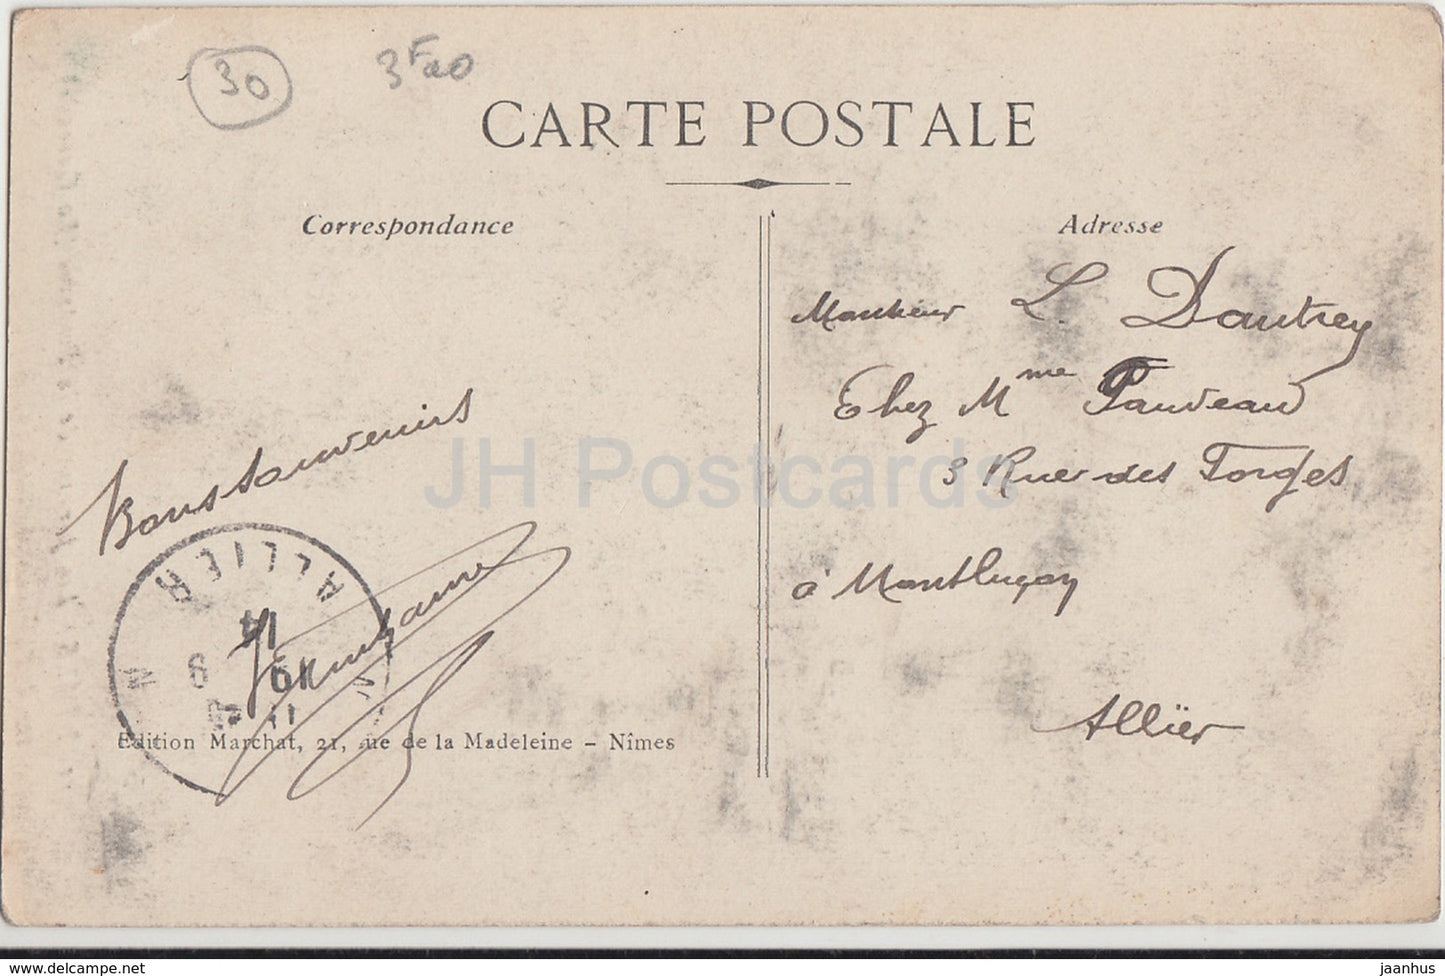 30
3F20
CARTE POSTALE
Correspondance
Adresse
Monsieur L. Dautrey
Chez Mme Pauveau
3 Rue des Forges
à Montluçon
Allier
Bons souvenirs
ALLIER
14
9
Edition Marchat, 21, rue de la Madeleine - Nîmes
JH Postcards
delcampe.net
jaanhus